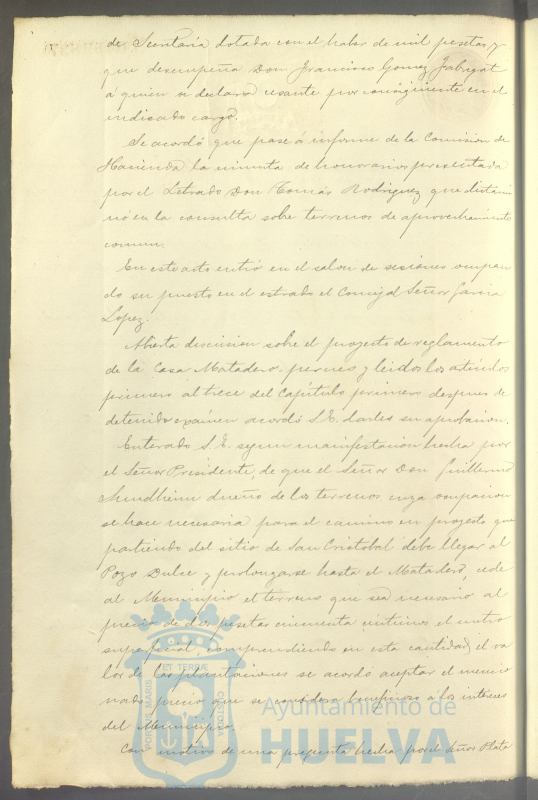 de Secretaria dotada con el haber de mil pesetas, y
que desempeña Don Francisco Gomez Fabregat
á quien se declara cesante por consiguiente en el
indicado cargo.
Se acordó que pase á informe de la Comision de
Hacienda la minuta de honorarios presentada
por el Letrado Don Tomás Rodriguez que dictami
nó en la consulta sobre terrenos de aprovechamiento
comun.
En este acto entró en el salon de sesiones ocupan
do su puesto en el estrado el Concejal Señor Garcia
Lopez.
Abierta discusion sobre el proyecto de reglamento
de la Casa Matadero y leidos los articulos
primero al trece del Capítulo primero despues de
detenido exámen acordó S.E. darles su aprobacion.
Enterado S.E. segun manifestacion hecha por
el Señor Presidente, de que el Señor Don Guillermo
Sundheim dueño de los terrenos cuya ocupacion
se hace necesaria para el camino en proyecto que
partiendo del sitio de San Cristobal debe llegar al
Pozo Dulce y prolongarse hasta el Matadero, cede
al Municipio el terreno que sea necesario al
precio de dos pesetas cincuenta centimos el metro
superficial, comprendiendo en esta cantidad el va
lor de las plantaciones se acordó aceptar el mencio
nado precio que se considera beneficioso á los intereses
del Municipio.
Con motivo de una pregunta hecha por el Señor Plata
PORTUS MARIS
ET TERRÆ
CUSTODIA
Ayuntamiento de
HUELVA